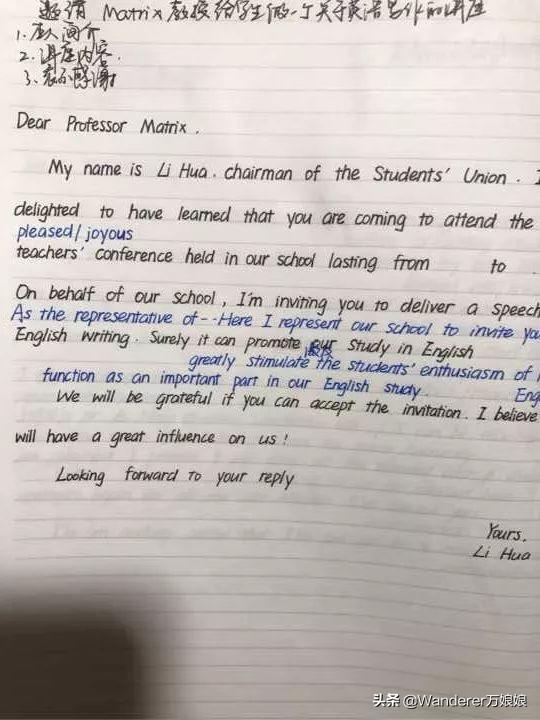 邀请 Matrix 教授给学生做一个关于英语写作的讲座
1. 个人简介
2. 讲座内容.
3. 表示感谢
Dear Professor Matrix.
My name is Li Hua. chairman of the Students' Union. I
delighted to have learned that you are coming to attend the
pleased/ joyous
teachers' conference held in our school lasting from to .
On behalf of our school, I'm inviting you to deliver a speech
As the representative of-- Here I represent our school to invite you
English writing. Surely it can promote our study in English
greatly stimulate the students' enthusiasm of
function as an important part in our English study. Eng
We will be grateful if you can accept the invitation. I believe
will have a great influence on us!
Looking forward to your reply
Yours.
Li Hua
头条 @Wanderer万娘娘